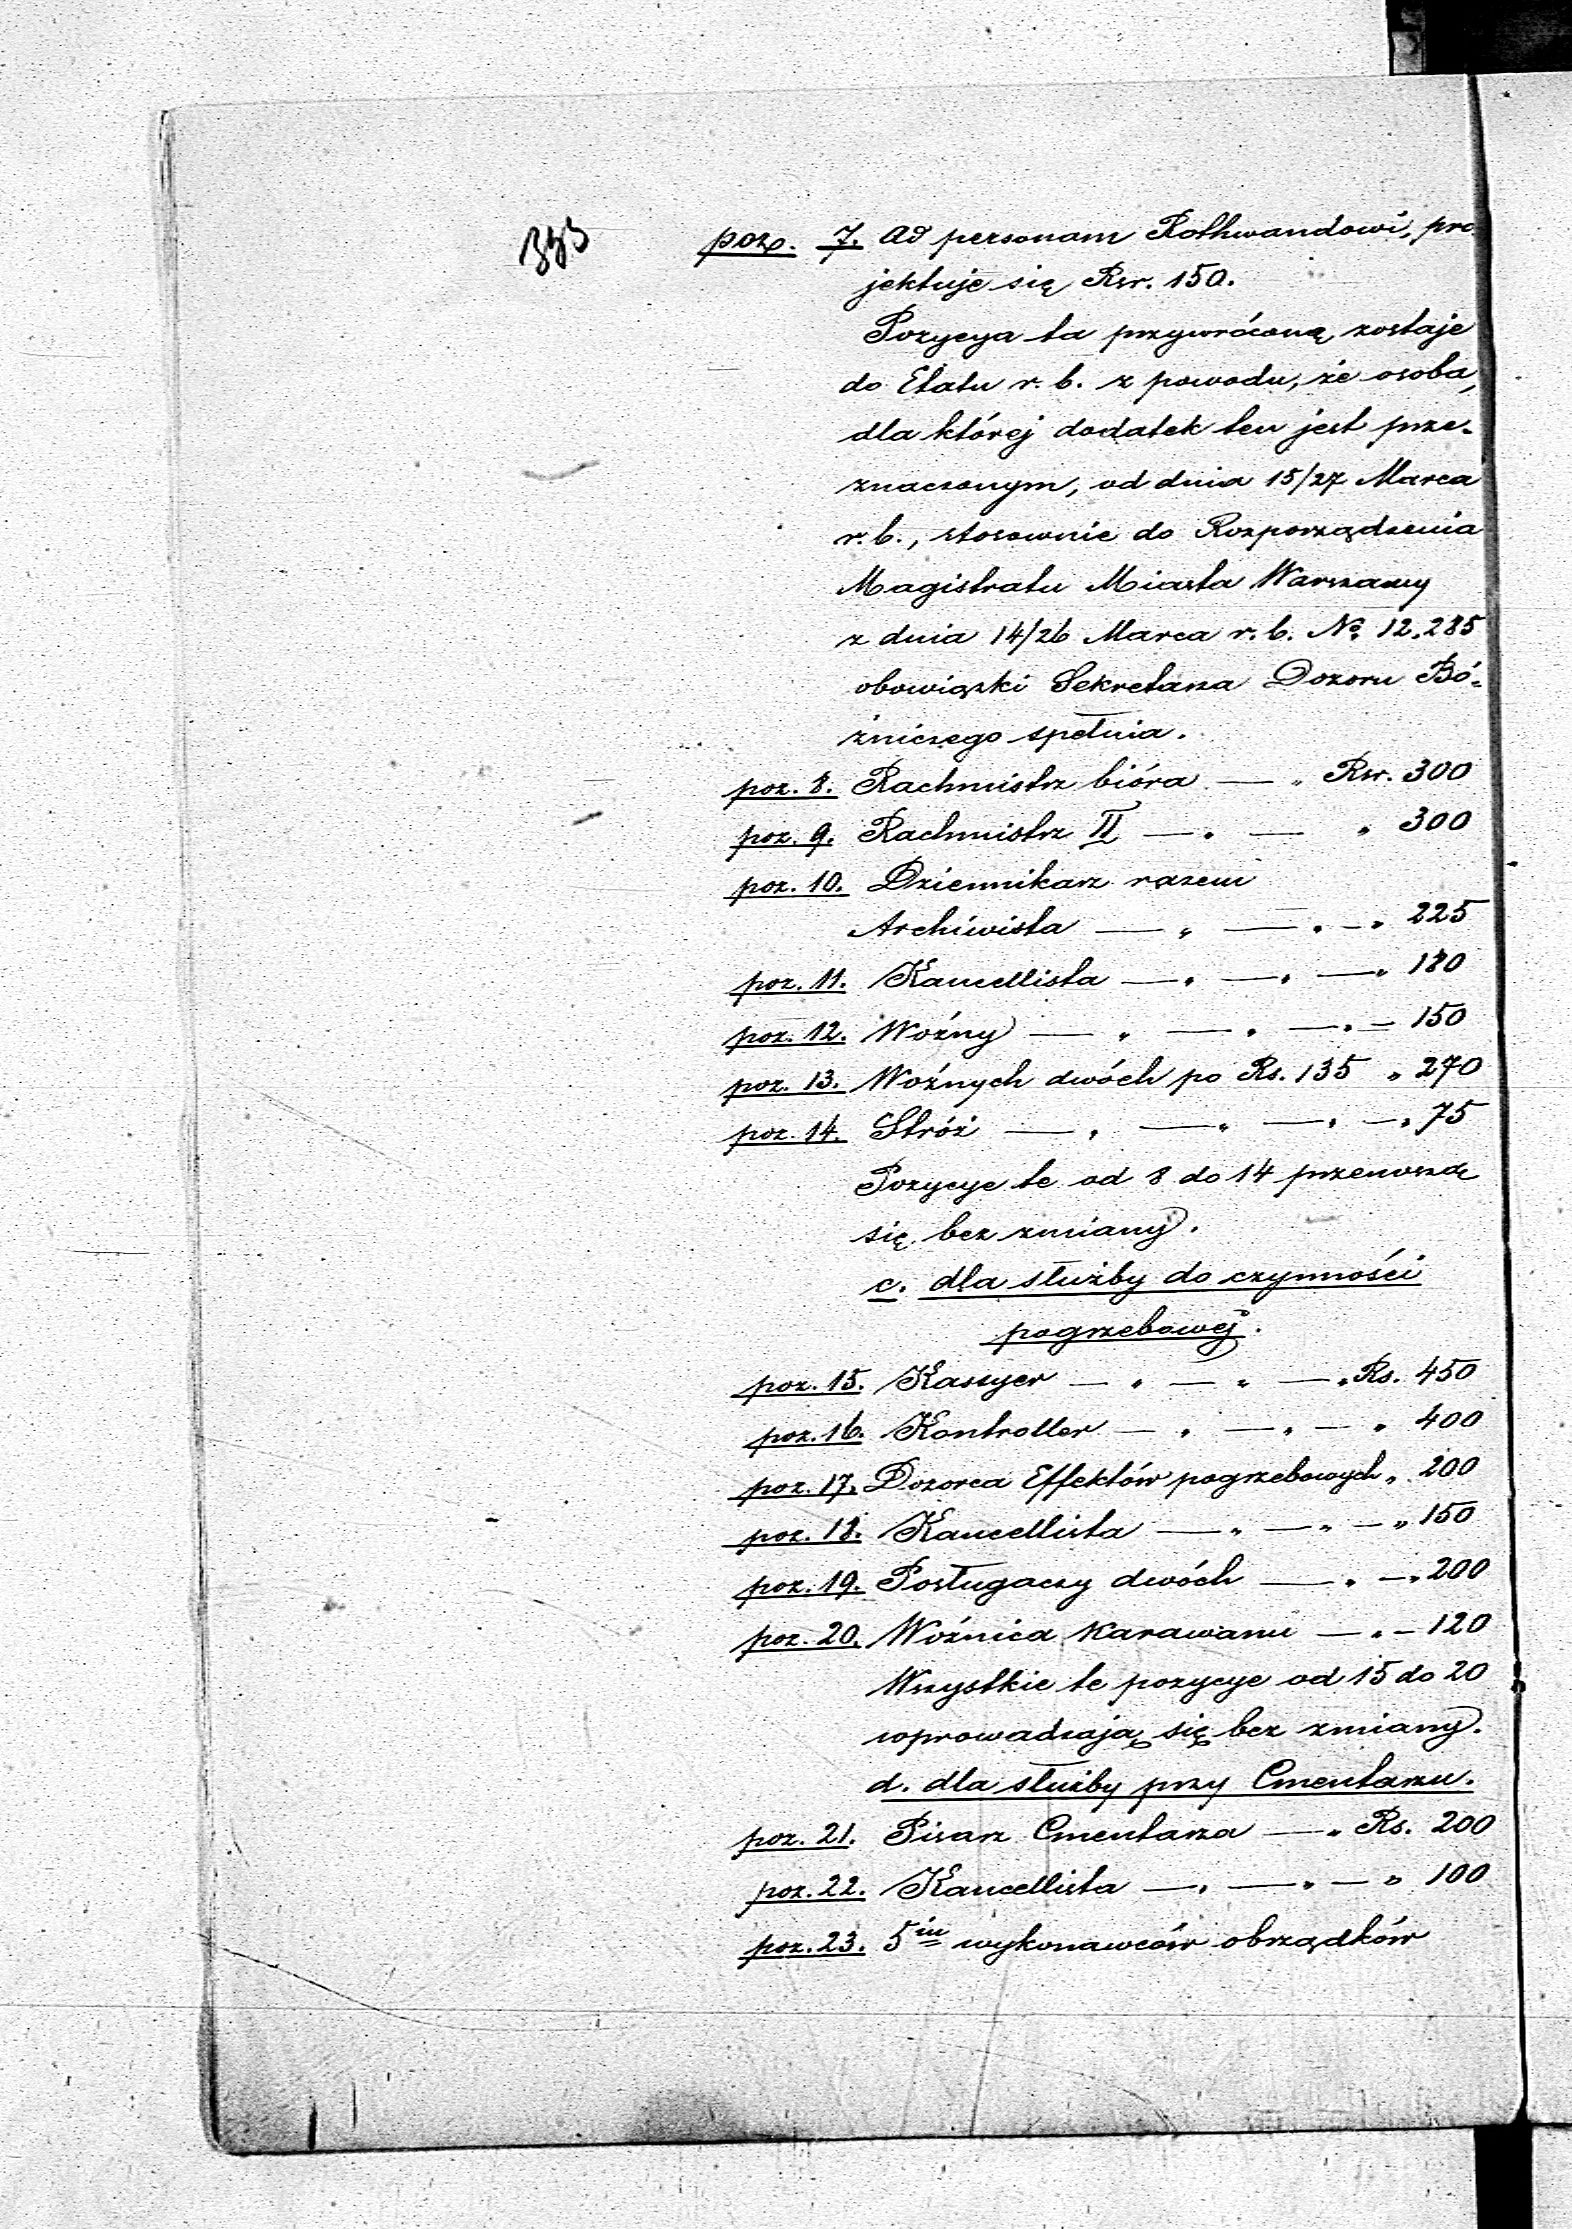 353
poz. 7. Ad personam Rothwandowi, pro-
jektuje się Rsr. 150.
Pozycya ta przywróconą zostaje
do Etatu r. b. z powodu, że osoba,
dla której dodatek ten jest prze-
znaczonym, od dnia 15/27 Marca
r. b., stosownie do Rozporządzenia
Magistratu Miasta Warszawy
z dnia 14/26 Marca r. b. No. 12.285
obowiązki Sekretarza Dozoru Bó-
żniczego spełnia.
poz. 8. Rachmistrz bióra — „ Rsr. 300
poz. 9. Rachmistrz II — „ — „ 300
poz. 10. Dziennikarz razem
Archiwista — „ — „ — „ 225
poz. 11. Kancellista — „ — „ — „ 180
poz. 12. Woźny — „ — „ — „ — 150
poz. 13. Woźnych dwóch po Rs. 135 „ 270
poz. 14. Stróż — „ — „ — „ — „ 75
Pozycye te od 8 do 14 przenoszą
się bez zmiany.
c. dla służby do czynności
pogrzebowej.
poz. 15. Kassyer — „ — „ — „ Rs. 450
poz. 16. Kontroller — „ — „ — „ 400
poz. 17. Dozorca Effektów pogrzebowych „ 200
poz. 18. Kancellista — „ — „ — „ 150
poz. 19. Posługaczy dwóch — „ — „ 200
poz. 20. Woźnica karawanu — „ — 120
Wszystkie te pozycye od 15 do 20
wprowadzają się bez zmiany.
d. dla służby przy Cmentarzu.
poz. 21. Pisarz Cmentarza — „ Rs. 200
poz. 22. Kancellista — „ — „ — „ 100
poz. 23. 5iu wykonawców obrządków